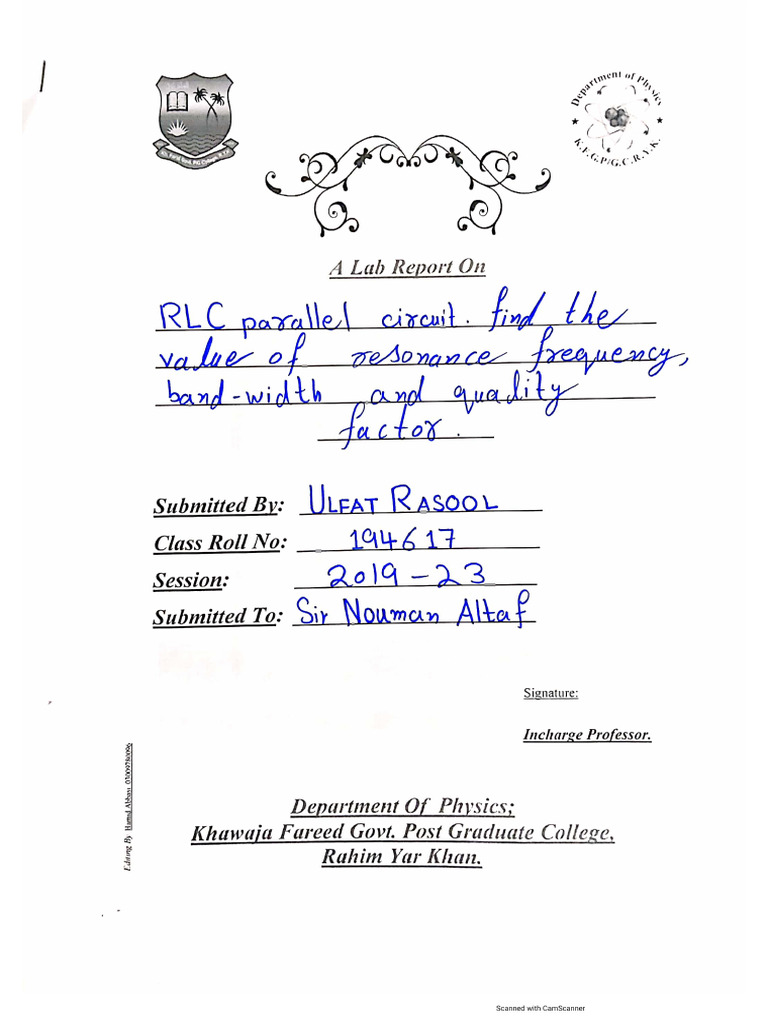 Department of Physics
K.F.G.P/G.C.R.Y.K.
A Lab Report On
RLC parallel circuit. find the
value of resonance frequency,
band-width and quality
factor.
Submitted By: ULFAT RASOOL
Class Roll No: 194617
Session: 2019-23
Submitted To: Sir Nouman Altaf
Signature:
Incharge Professor.
Editing By Hamid Abbasi
Department Of Physics;
Khawaja Fareed Govt. Post Graduate College,
Rahim Yar Khan.
Scanned with CamScanner